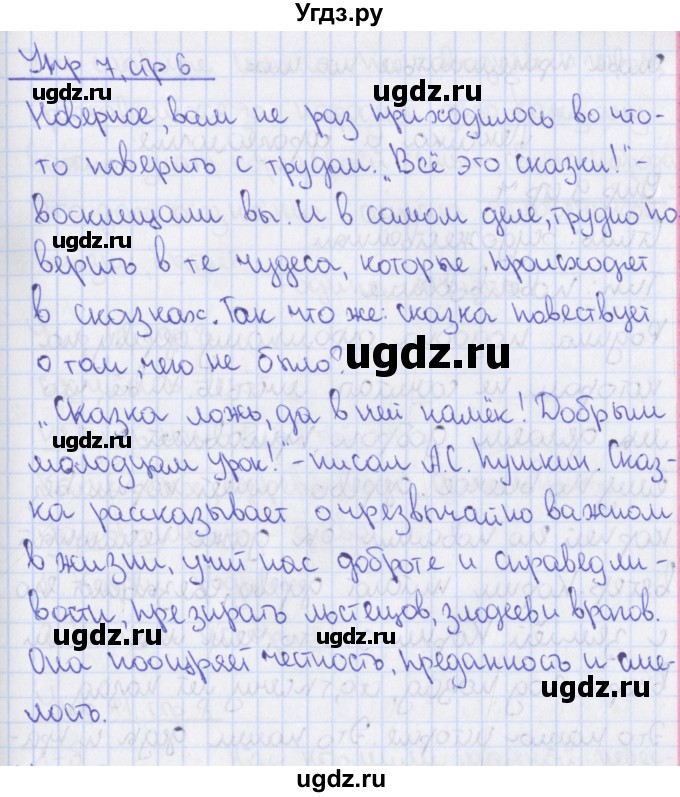 Угдз.ру
Упр 7, стр 6
Наверное, вам не раз приходилось во что-
то поверить с трудом. „Всё это сказки!“-
восклицали вы. И в самом деле, трудно по-
верить в те чудеса, которые происходят
в сказках. Так что же: сказка повествует
о том, чего не было?
„Сказка ложь, да в ней намёк! Добрым
молодцам урок!“ - писал А.С. Пушкин. Сказ-
ка рассказывает о чрезвычайно важном
в жизни, учит нас доброте и справедли-
вости, презирать льстецов, злодеев и врагов.
Она поощряет честность, преданность и сме-
лость.
ugdz.ru
ugdz.ru
ugdz.ru
ugdz.ru
ugdz.ru
ugdz.ru
ugdz.ru
ugdz.ru
ugdz.ru
ugdz.ru
ugdz.ru